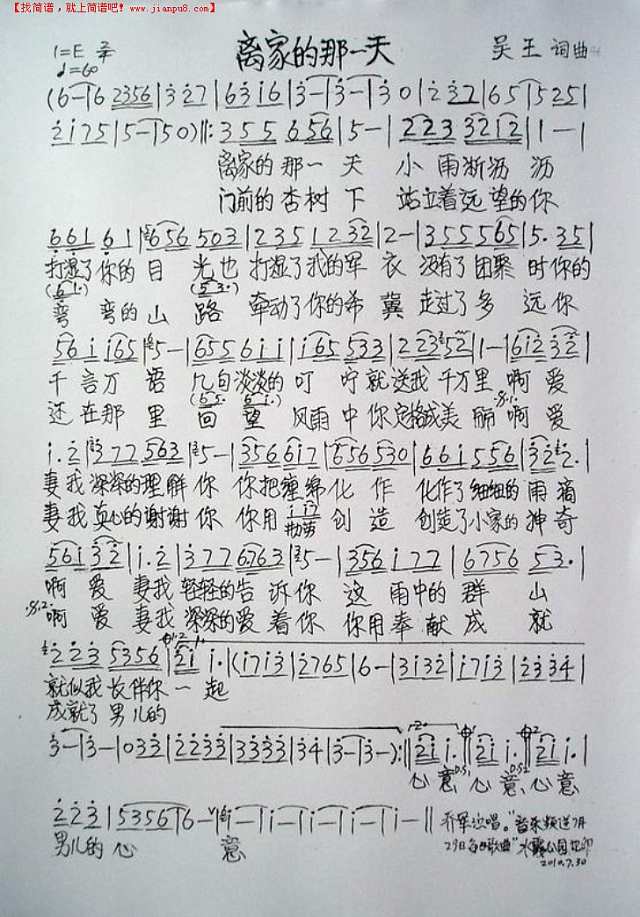 【找简谱，就上简谱吧！www.jianpu8.com】
离家的那一天
1=E
♩=60
吴王 词曲
(6-|6 2356|3 27|63 16|3-|3-|30|2 327|65|525|
2175|5-|50)||:355 656|5-|223 3212|1-|
离家的 那一 天 小 雨淅沥 沥
门前的 杏树 下 站立着 远望的你
661 61|656 503|235 1232|2-|3555 65|5. 35|
打湿了你的目 光也 打湿了我的军 衣 没有了团聚 时你的
弯 弯的山 路 牵动了你的希 冀 走过了多 远你
561 165|5-|655 611|165 533|223 52|1-|612 32|
千言万 语 几句淡淡的 叮 咛就送我 千万里 啊 爱
还在那 里 回 望 风雨中你定格成美 丽 啊 爱
1. 2|377 563|5-|356 617|656 530|661 556|32 2.|
妻我 深深的理解 你 你把缠绵化 作 化作了细细的雨滴
妻我 真心的谢谢 你 你用勤劳 创 造 创造了小家的神奇
561 32|1. 2|377 6763|5-|356 177|6756 53.|
啊 爱 妻我 轻轻的告 诉你 这 雨中的 群 山
啊 爱 妻我 深深的爱 着你 你用奉 献 成 就
223 5356|21 1.|(1713|2765|6-|3132|1713|2334|
就似我 长伴你一 起
成就了 男儿的
3-|3-|033|2233|3333|34|3-|3-):||21 1.|21 1.|21 1.|
心 意 心 意 心 意
223|5356|6-|1-|1-|1-|1-|1-||
男儿的 心 意
乔军演唱。"音乐频道7月
29日每日歌曲"
2010.7.30